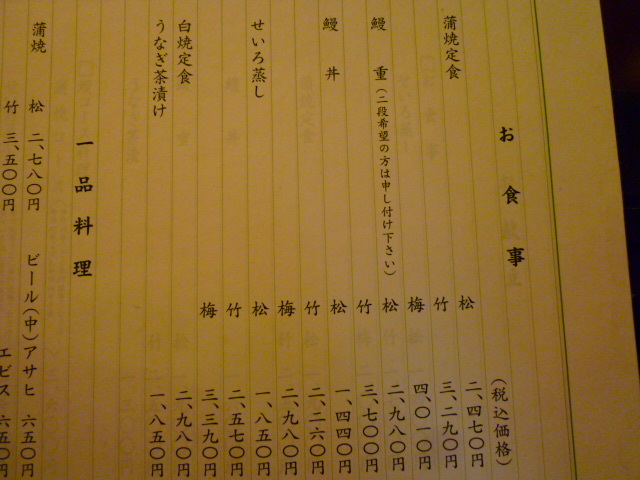 お食事
(税込価格)
蒲焼定食 松 二、四七〇円
竹 三、二九〇円
梅 四、〇一〇円
鰻重(二段希望の方は申し付け下さい) 松 二、九八〇円
竹 三、七〇〇円
鰻丼 松 一、四四〇円
竹 二、二六〇円
梅 二、九八〇円
せいろ蒸し 松 一、八五〇円
竹 二、五七〇円
梅 三、三九〇円
白焼定食 二、九八〇円
うなぎ茶漬け 一、八五〇円
一品料理
蒲焼 松 二、七八〇円 ビール(中)アサヒ 六五〇円
竹 三、五〇〇円 エビス 六五〇円